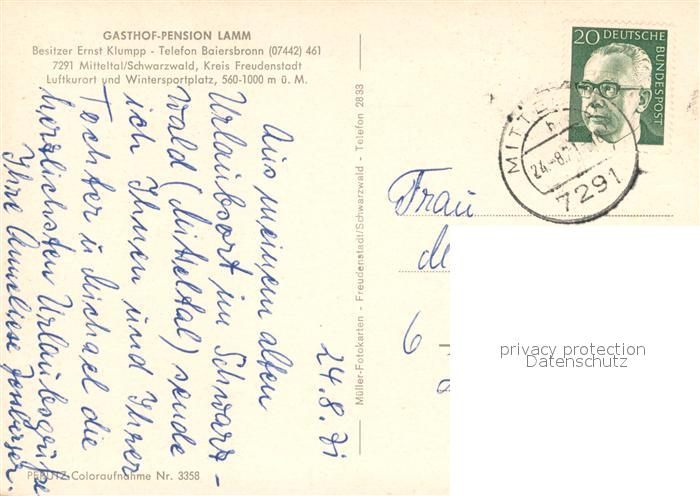 GASTHOF-PENSION LAMM
Besitzer Ernst Klumpp - Telefon Baiersbronn (07442) 461
7291 Mitteltal/Schwarzwald, Kreis Freudenstadt
Luftkurort und Wintersportplatz, 560-1000 m ü. M.
24.8.71
Aus meinem alten
Urlaubsort im Schwarz-
wald (Mitteltal) sende
ich Ihnen und Ihrer
Tochter u. Michael die
herzlichsten Urlaubsgrüße
Ihre Anneliese
PERUTZ-Coloraufnahme Nr. 3358
Müller-Fotokarten - Freudenstadt/Schwarzwald - Telefon 2833
20 DEUTSCHE
BUNDESPOST
24.-8.71
7291
Frau
6
privacy protection
Datenschutz